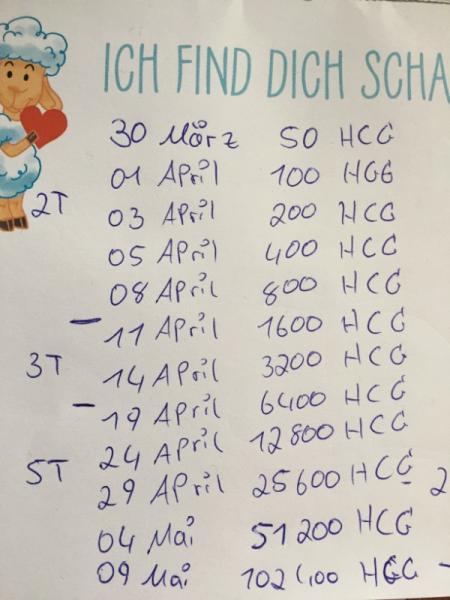 ICH FIND DICH SCHA
30 März 50 HCG
01 April 100 HGG
2T
03 April 200 HCG
05 April 400 HCG
08 April 800 HCG
- 11 April 1600 HCG
3T
14 April 3200 HCG
- 19 April 6400 HCG
24 April 12800 HCG
5T
29 April 25600 HCG 2
04 Mai 51200 HCG
09 Mai 102400 HCG -